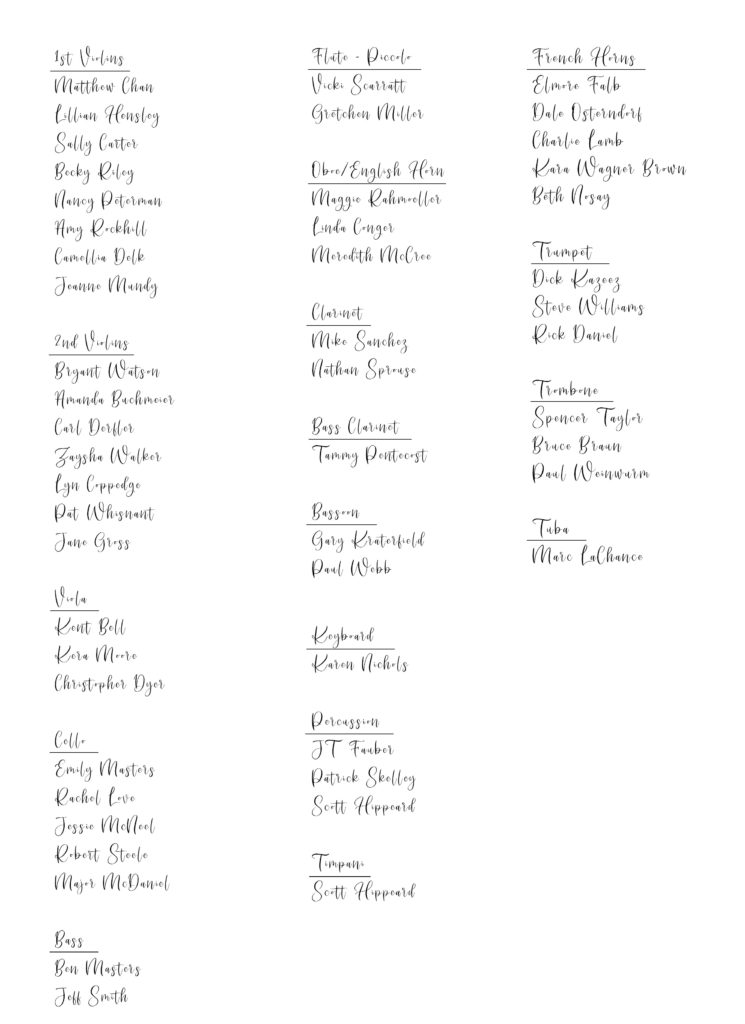 1st Violins
Matthew Chan
Lillian Hensley
Sally Carter
Becky Riley
Nancy Peterman
Amy Rockhill
Camellia Delk
Jeanne Mundy
2nd Violins
Bryant Watson
Amanda Buchmeier
Carl Derfler
Zaysha Walker
Lyn Coppedge
Pat Whisnant
Jane Gross
Viola
Kent Bell
Kera Moore
Christopher Dyer
Cello
Emily Masters
Rachel Love
Jessie McNeel
Robert Steele
Major McDaniel
Bass
Ben Masters
Jeff Smith
Flute - Piccolo
Vicki Scarratt
Gretchen Miller
Oboe/English Horn
Maggie Rahmoeller
Linda Conger
Meredith McCree
Clarinet
Mike Sanchez
Nathan Sprouse
Bass Clarinet
Tammy Pentecost
Bassoon
Gary Kraterfield
Paul Webb
Keyboard
Karen Nichols
Percussion
JT Fauber
Patrick Skelley
Scott Hippeard
Timpani
Scott Hippeard
French Horns
Elmore Falb
Dale Osterndorf
Charlie Lamb
Kara Wagner Brown
Beth Nosay
Trumpet
Dick Kazeez
Steve Williams
Rick Daniel
Trombone
Spencer Taylor
Bruce Braun
Paul Weinwurm
Tuba
Marc LaChance